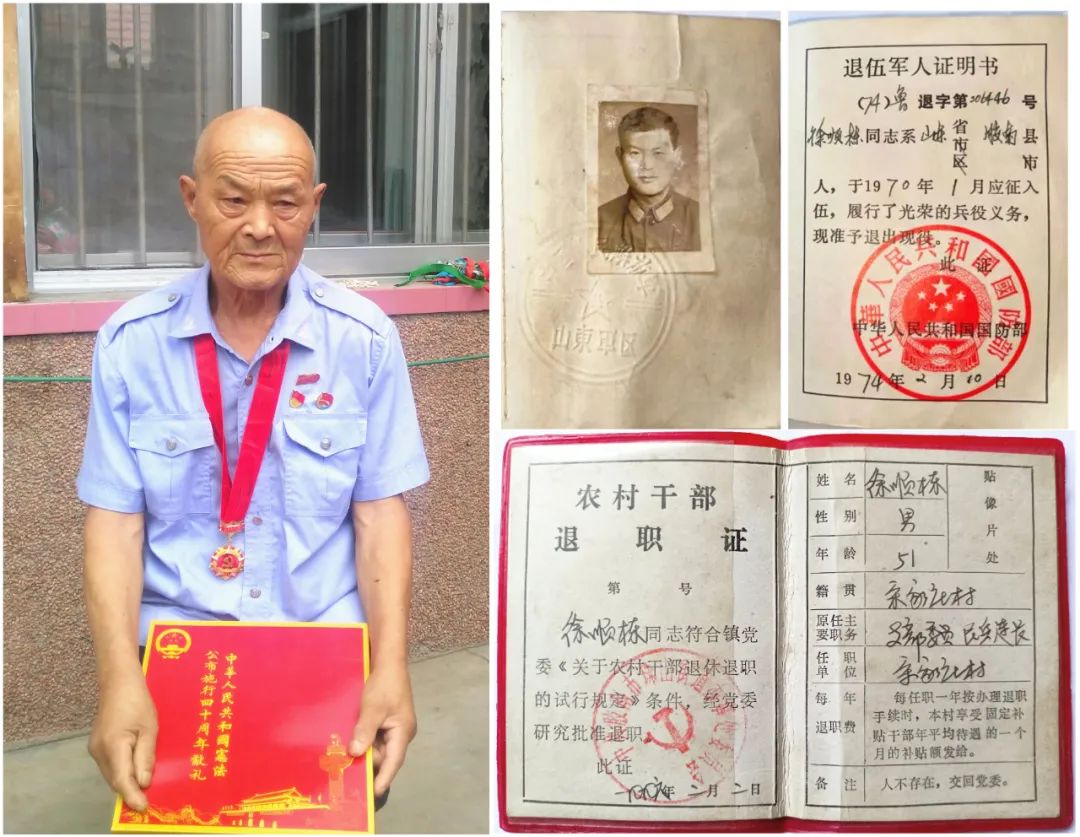 中華人民共和國憲法
公布施行四十周年献礼
山東軍区
退伍军人证明书
（74）鲁 退字第206446号
徐顺栋同志系山东省市区胶南县市
人，于1970年1月应征入
伍，履行了光荣的兵役义务，
现准予退出现役。
此证
中華人民共和国國防部
中华人民共和国国防部
1974年2月10日
农村干部
退职证
第 号
徐顺栋同志符合镇党
委《关于农村干部退休退职
的试行规定》条件，经党委
研究批准退职。
此证
年二月二日
姓名 徐顺栋
贴像片处
性别 男
年龄 51
籍贯 家庄村
原任主要职务 支部委员 民兵连长
任职单位 家庄村
每年退职费
每任职一年按办理退职
手续时，本村享受固定补
贴干部年平均待遇的一个
月的补贴额发给。
备注 人不存在，交回党委。